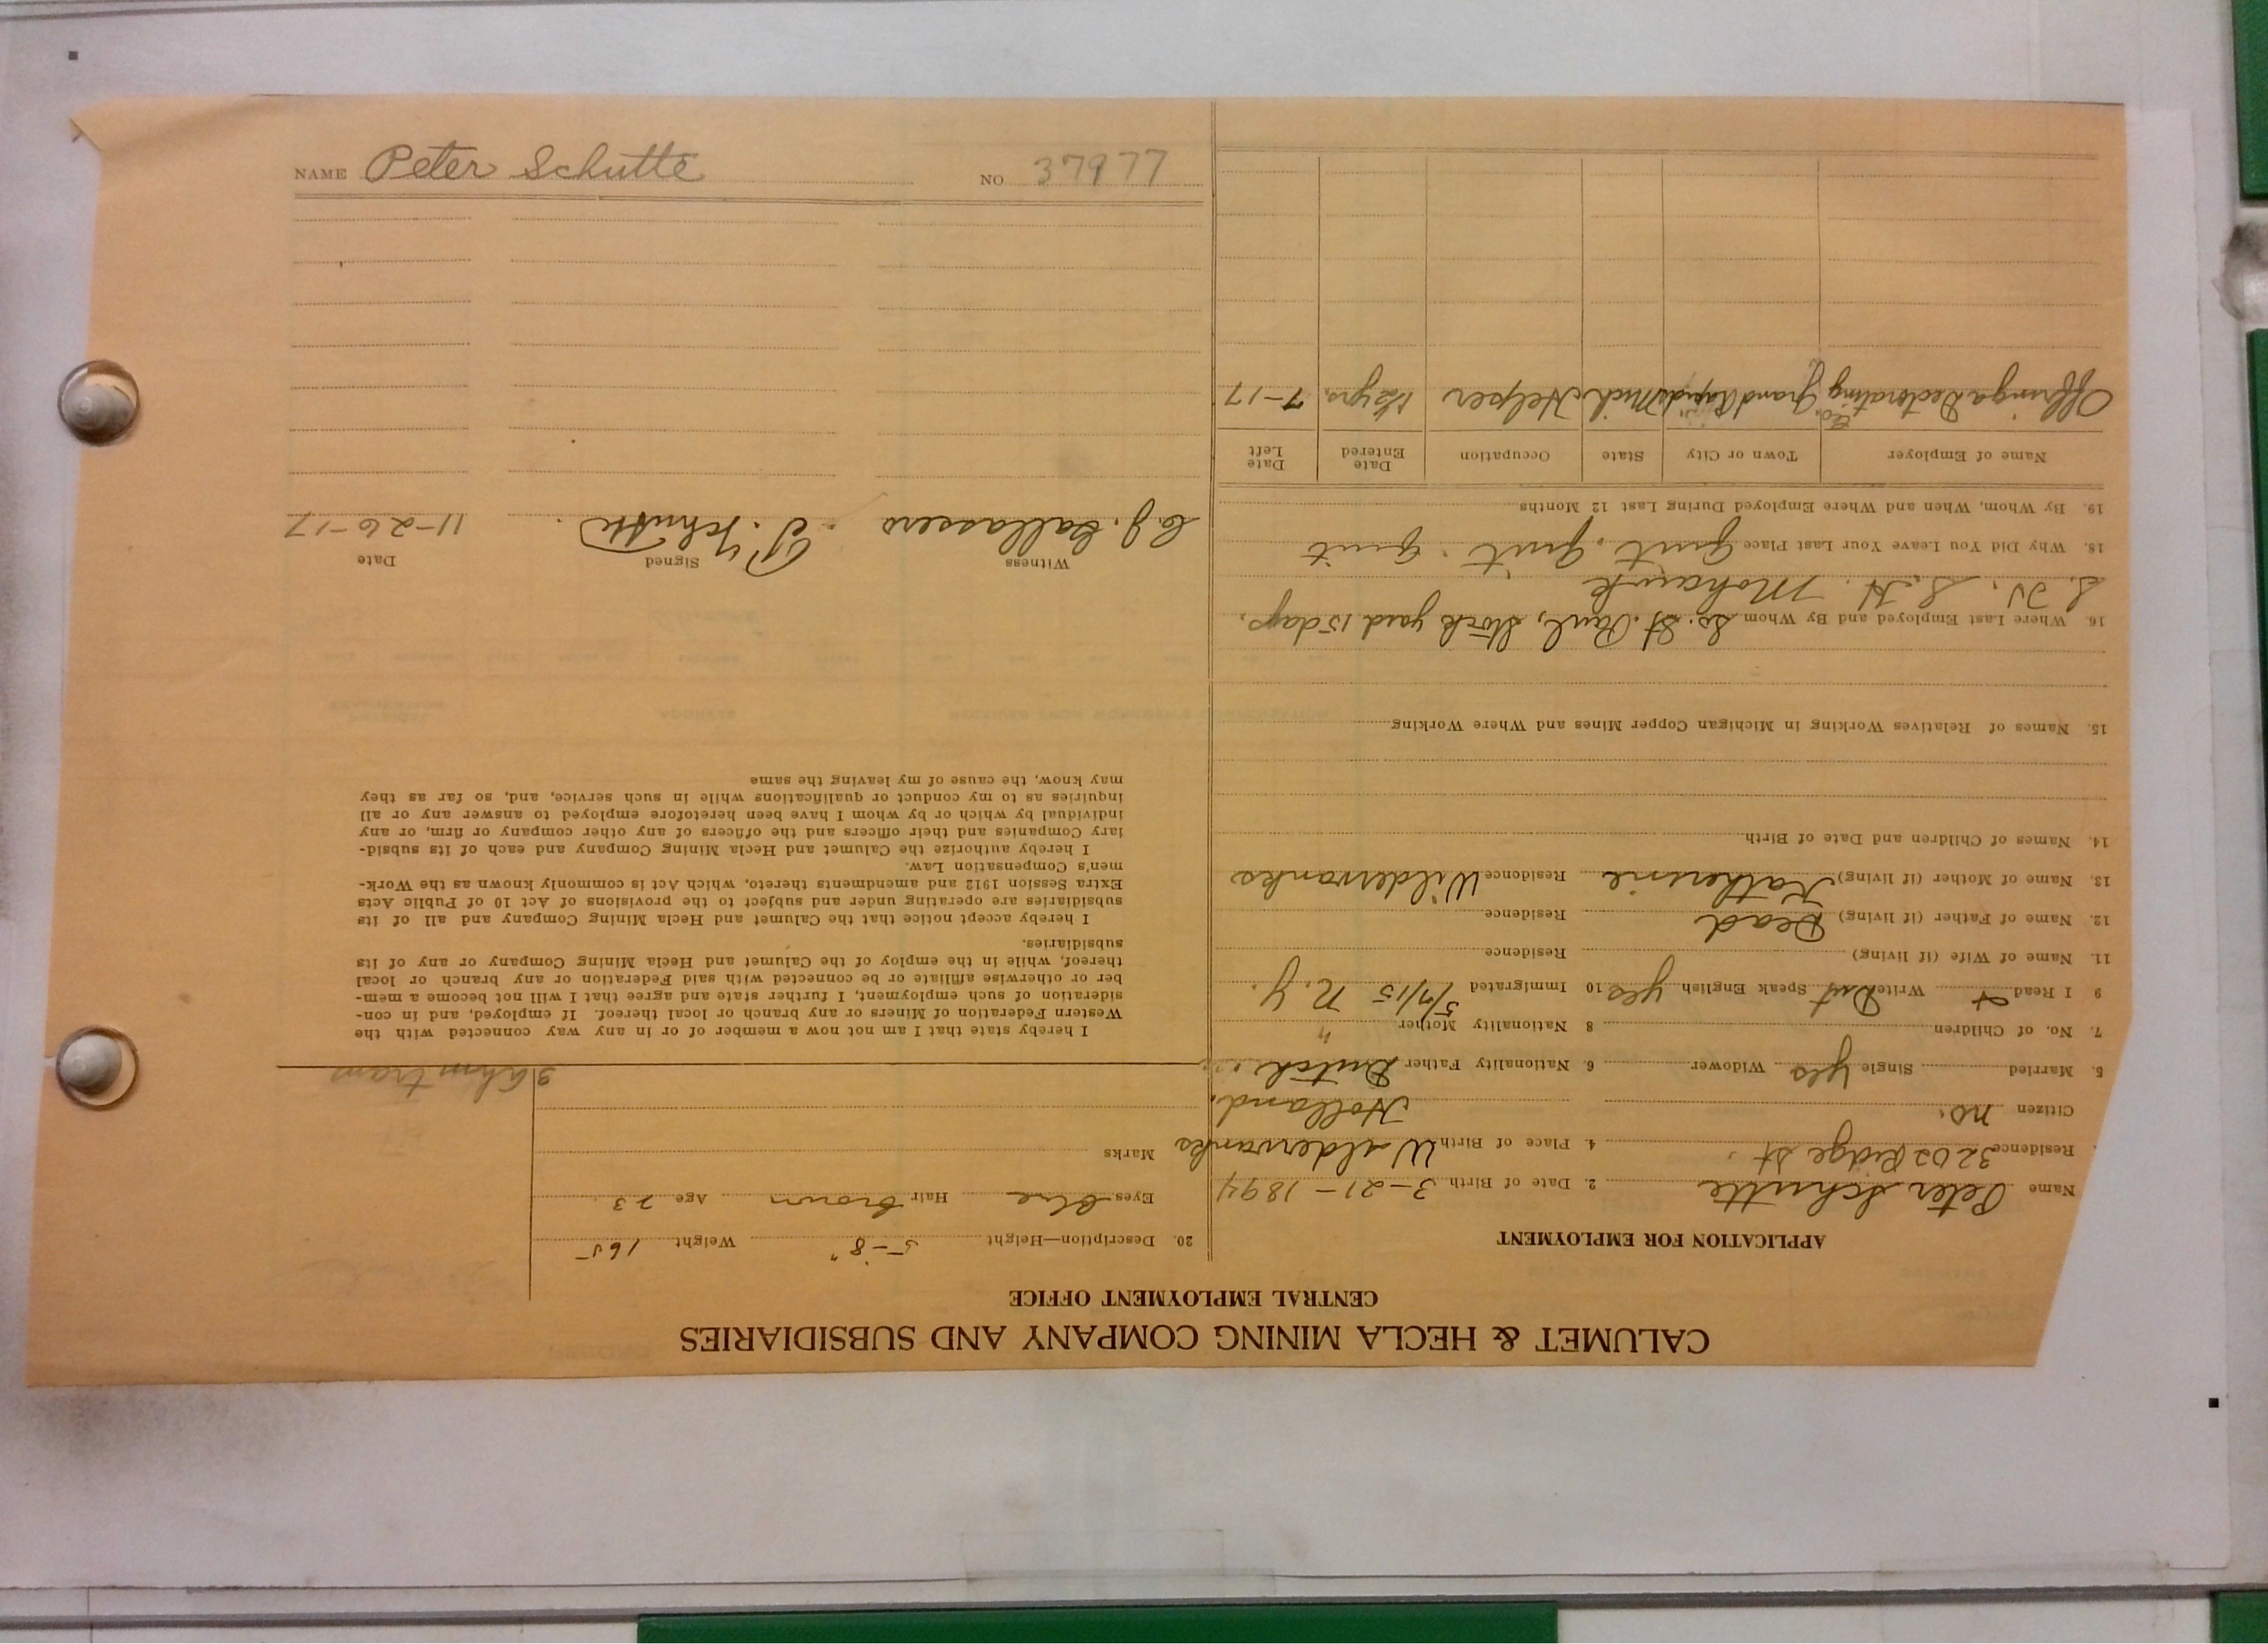 NAME Peter Schutte NO 37977
CALUMET & HECLA MINING COMPANY AND SUBSIDIARIES
CENTRAL EMPLOYMENT OFFICE
APPLICATION FOR EMPLOYMENT
Name Peter Schutte 2. Date of Birth 3-21-1894
Residence 3202 Ridge St. 4. Place of Birth Wildervanks
Citizen no. Holland.
5. Married Single yes Widower 6. Nationality Father Dutch
7. No. of Children 8 Nationality Mother "
9 I Read Write Dut Speak English yes 10 Immigrated 5/7/15 N.Y.
11. Name of Wife (if living) Residence
12. Name of Father (if living) Dead Residence
13. Name of Mother (if living) Katherine Residence Wildervanks
14. Names of Children and Date of Birth
15. Names of Relatives Working in Michigan Copper Mines and Where Working
16. Where Last Employed and By Whom So. St. Paul, Stock yard 15 days,
S. H. Mohawk
18. Why Did You Leave Your Last Place Quit, Quit. Quit
19. By Whom, When and Where Employed During Last 12 Months
Name of Employer Town or City State Occupation Date Entered Date Left
Offringa Decorating Co. Grand Rapids Mich Helper 1½ yrs. 7-17
20. Description—Height 5-8" Weight 165
Eyes Blue Hair Brown Age 23
Marks
tram
I hereby state that I am not now a member of or in any way connected with the
Western Federation of Miners or any branch or local thereof. If employed, and in con-
sideration of such employment, I further state and agree that I will not become a mem-
ber or otherwise affiliate or be connected with said Federation or any branch or local
thereof, while in the employ of the Calumet and Hecla Mining Company or any of its
subsidiaries.
I hereby accept notice that the Calumet and Hecla Mining Company and all of its
subsidiaries are operating under and subject to the provisions of Act 10 of Public Acts
Extra Session 1912 and amendments thereto, which Act is commonly known as the Work-
men's Compensation Law.
I hereby authorize the Calumet and Hecla Mining Company and each of its subsid-
iary Companies and their officers and the officers of any other company or firm, or any
individual by which or by whom I have been heretofore employed to answer any or all
inquiries as to my conduct or qualifications while in such service, and, so far as they
may know, the cause of my leaving the same
Witness Signed Date
C.J. P. Schutte 11-26-17